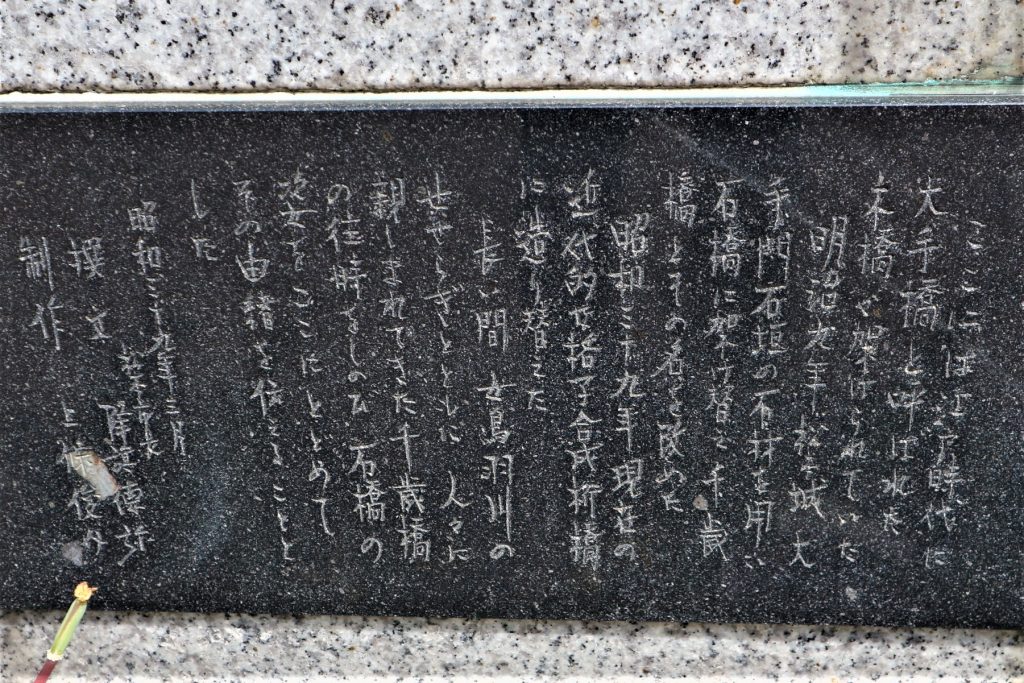 ここには江戸時代に
大手橋と呼ばれた
木橋が架けられていた
明治九年松本城大
手門石垣の石材を用い
石橋に架け替え千歳
橋とその名を改めた
昭和三十九年現在の
近代的な格子合成桁橋
に造り替えた
長い間女鳥羽川の
せせらぎとともに人々に
親しまれてきた千歳橋
の往時をしのび石橋の
姿をここにとどめて
その由緒を伝えることと
した
昭和三十九年三月
撰文 松本市長 降旗徳弥
制作 上條俊介